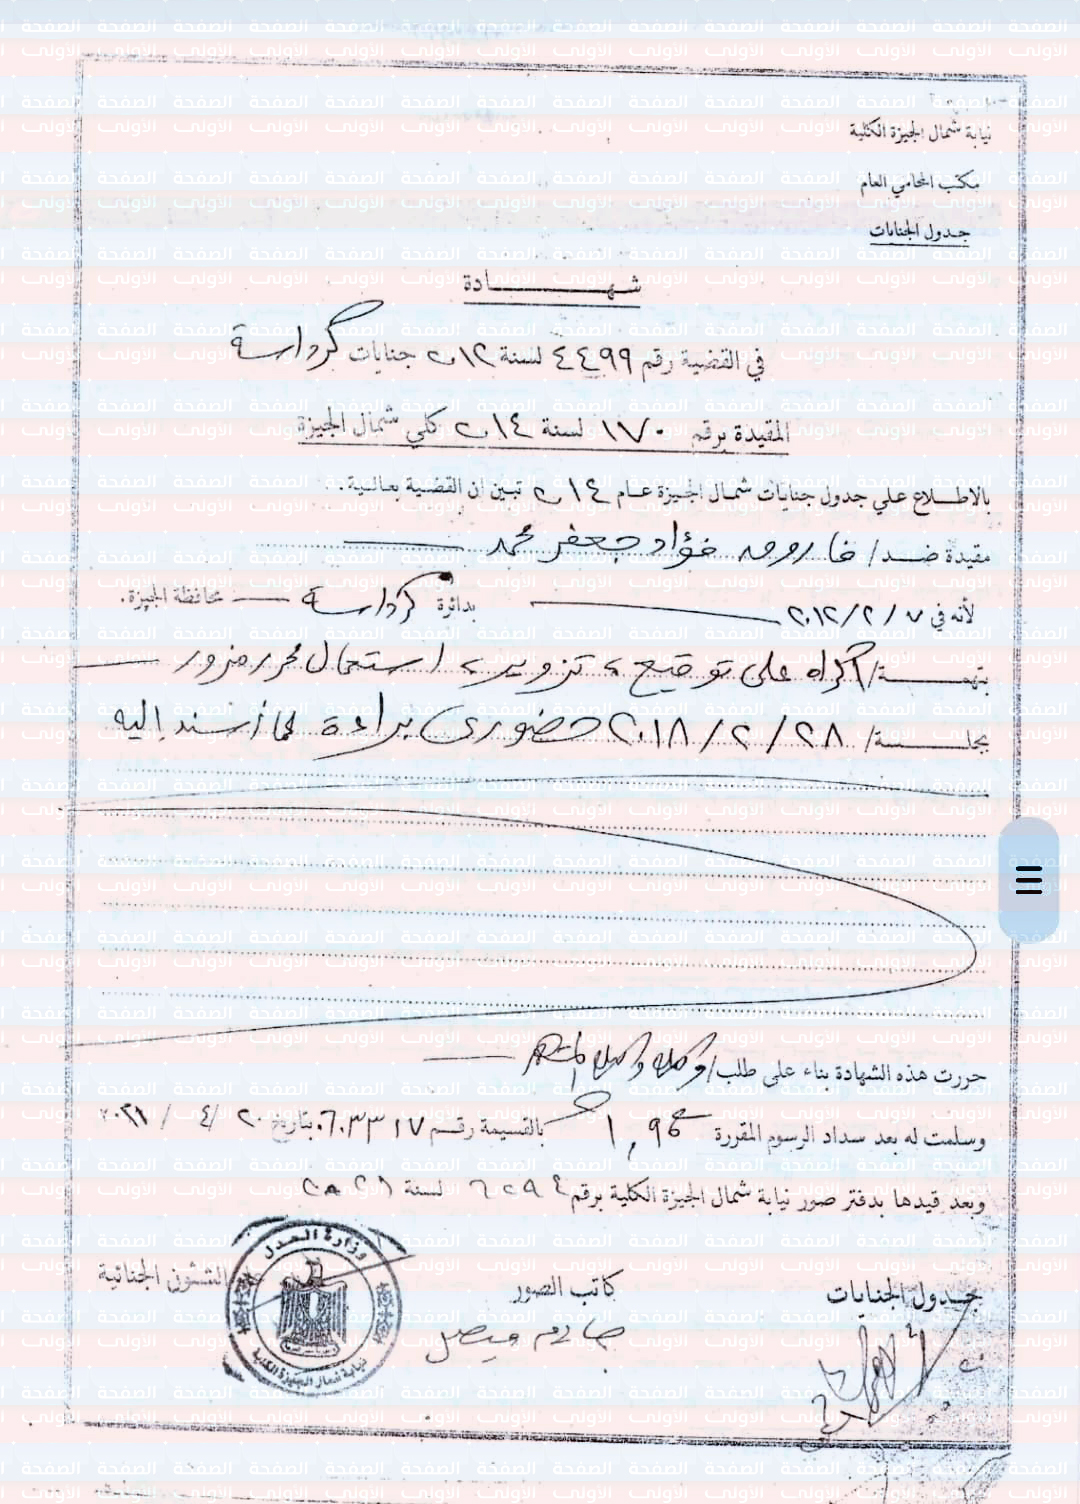 نيابة شمال الجيزة الكلية
مكتب المحامي العام
جدول الجنايات
شهادة
في القضية رقم ٤٤٩٩ لسنة ٢٠١٢ جنايات كرداسة
المقيدة برقم ١٧٠ لسنة ٢٠١٤ كلي شمال الجيزة
بالاطلاع علي جدول جنايات شمال الجيزة عام ٢٠١٤ تبين ان القضية بعالية.
مقيدة ضد/ فؤاد جعفر محمد
لأنه في ٧/٢/٢٠١٢ بدائرة كرداسة محافظة الجيزة.
بتهمة/ اكراه على توقيع، تزوير، استعمال محرر مزور
بجلسة/ ٢٨/٢/٢٠١٨ حضوري براءة مما أسند إليه
حررت هذه الشهادة بناء على طلب/
وسلمت له بعد سداد الرسوم المقررة بالقسيمة رقم ٦٠٣٣١٧ بتاريخ ٢٠/٤/٢٠٢١
وبعد قيدها بدفتر صور نيابة شمال الجيزة الكلية برقم ٦٢٩٤ لسنة ٢٠٢١
جدول الجنايات كاتب الصور الشئون الجنائية
وزارة العدل
نيابة شمال الجيزة الكلية
الصفحة الأولى